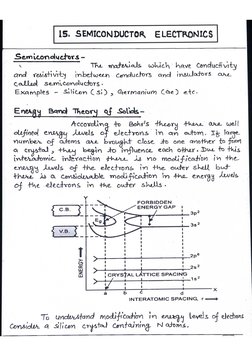 15. SEMICONDUCTOR ELECTRONICS
Semiconductors-
The materials which have conductivity
and resistivity inbetween conductors and insulators are
called semiconductors.
Examples - Silicon (Si), Germanium (Ge) etc.
Energy Band Theory of Solids-
According to Bohr's theory there are well
defined energy levels of electrons in an atom. If large
number of atoms are brought close to one another to form
a crystal, they begin to influence each other. Due to this
interatomic interaction there is no modification in the
energy levels of the electrons in the outer shell but
there is a considerable modification in the energy levels
of the electrons in the outer shells.
FORBIDDEN
ENERGY GAP
C.B.
3p²
Eg
3s²
V.B.
ENERGY
2p⁶
2s²
CRYSTAL LATTICE SPACING
1s²
a b c d X
INTERATOMIC SPACING, r
To understand modification in energy levels of electrons
Consider a Silicon crystal Containing N atoms.